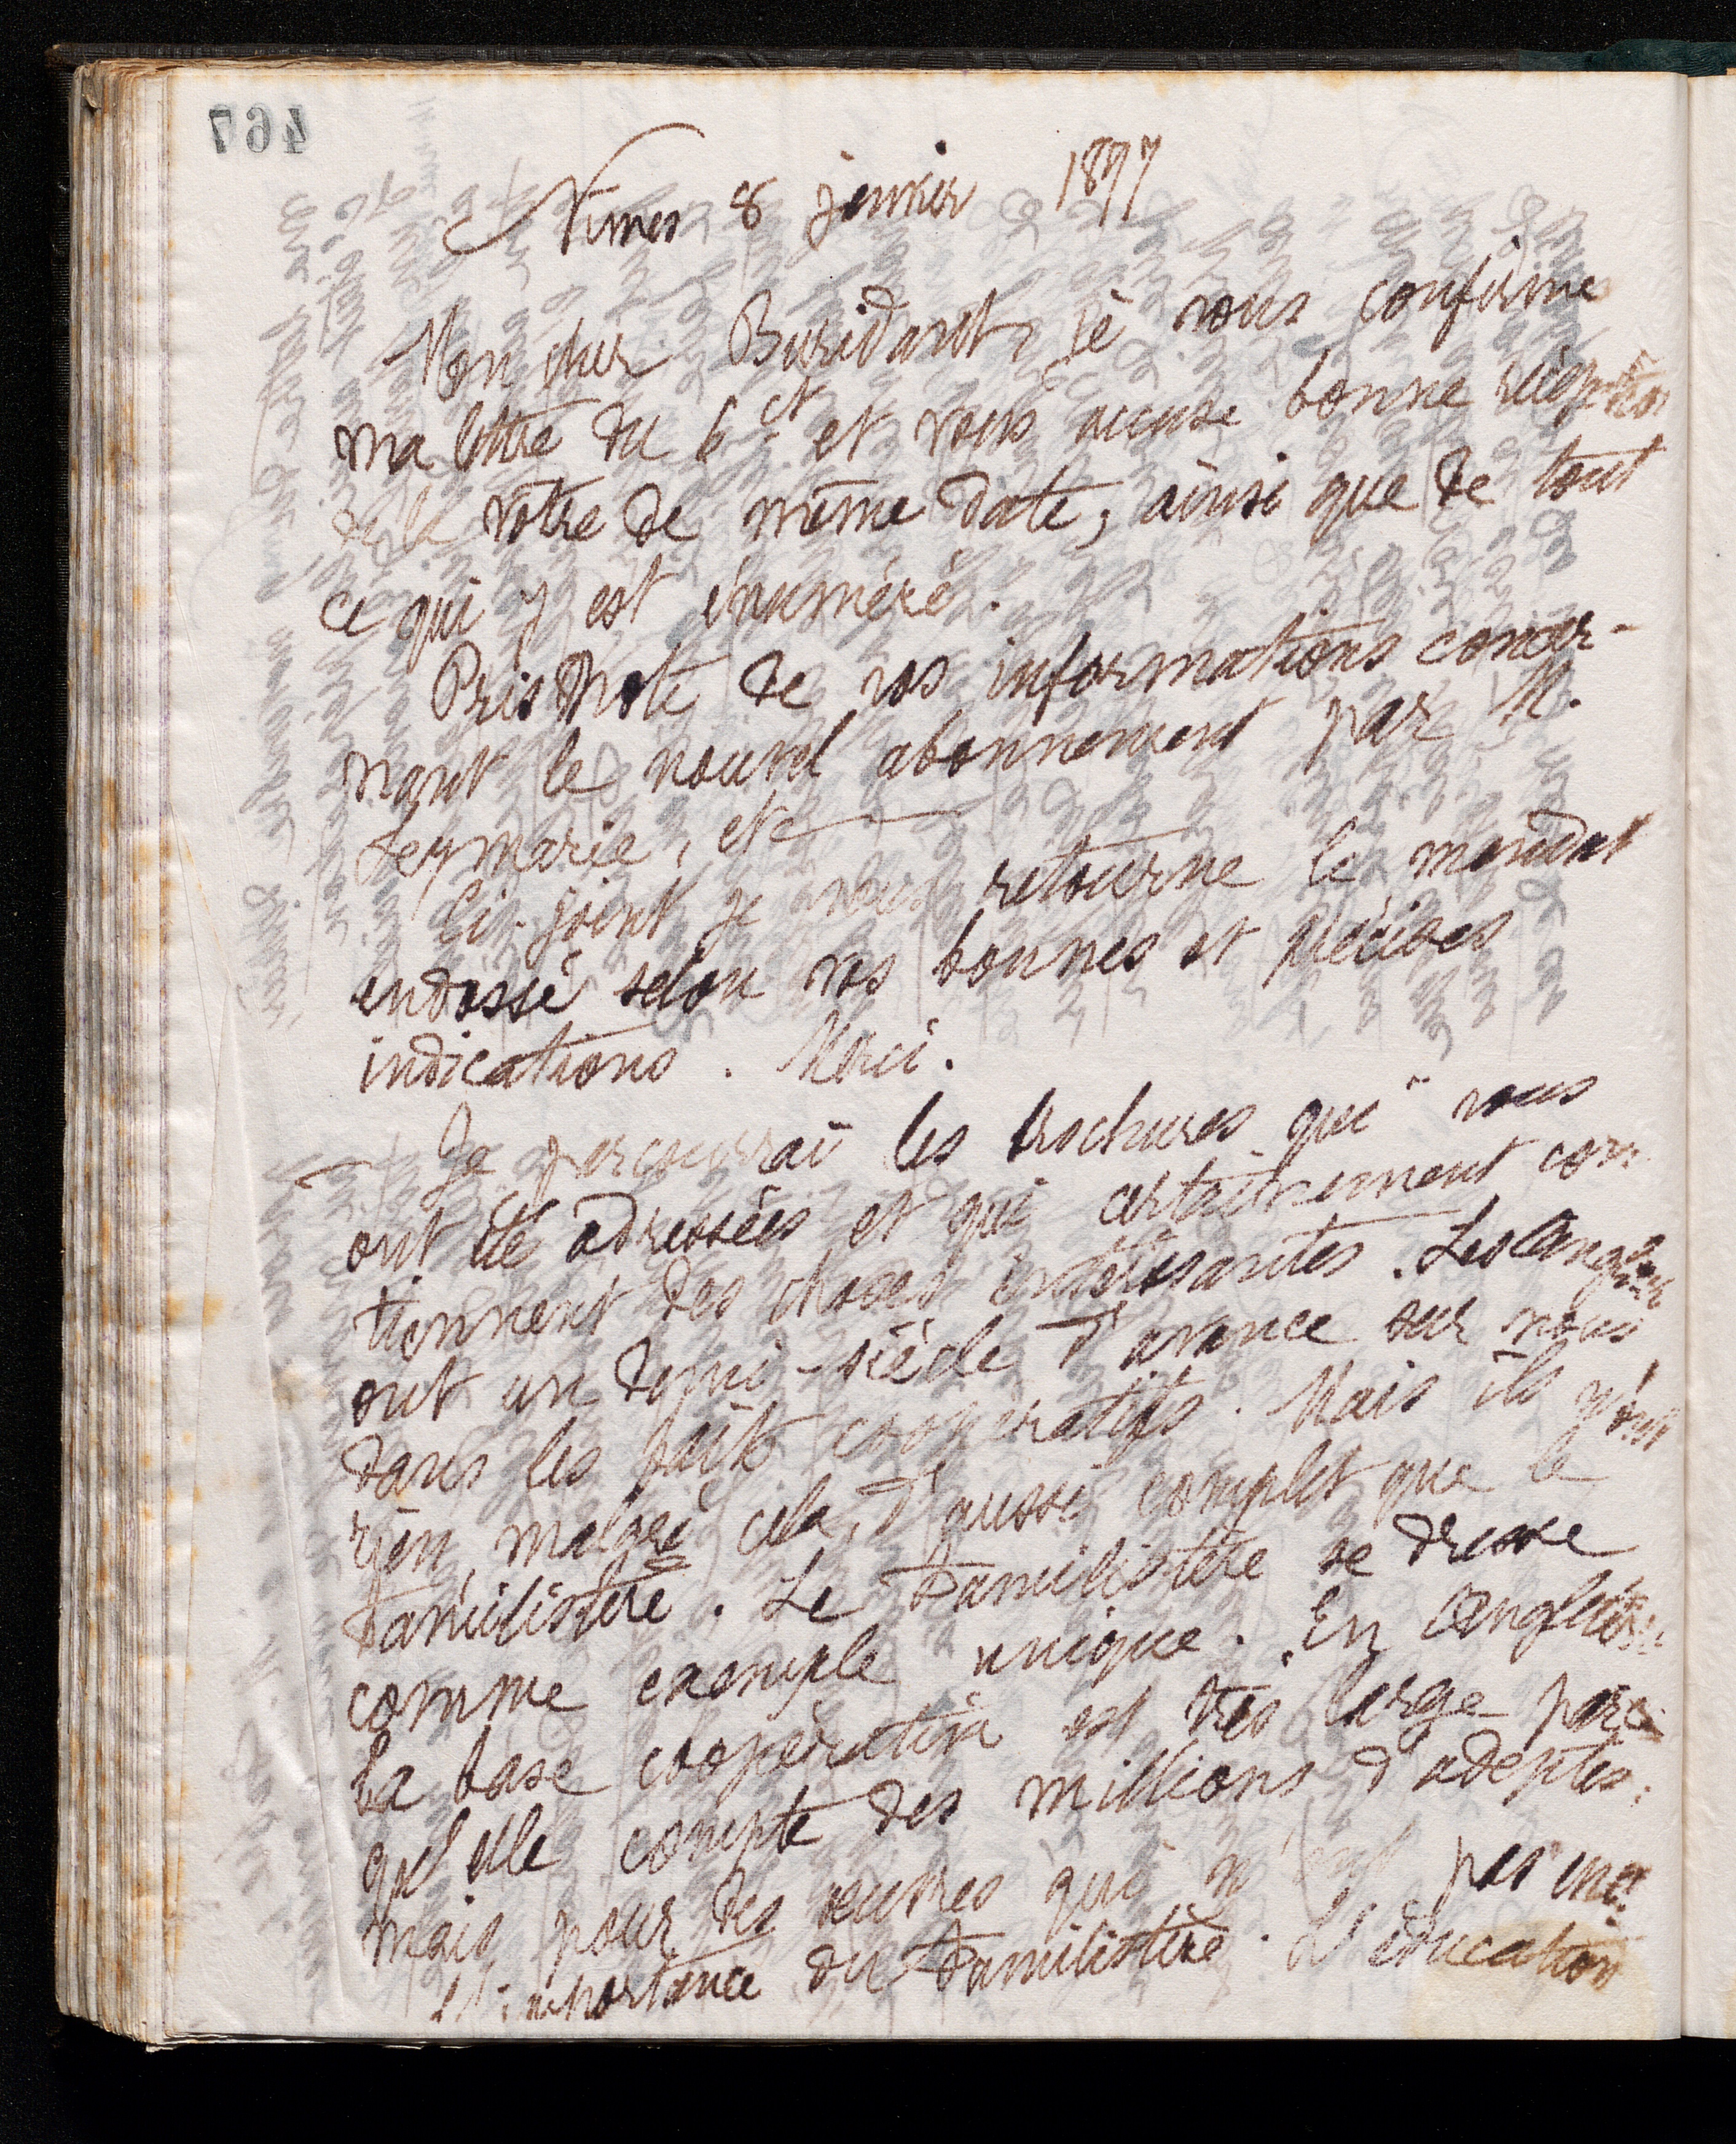 467
Nimes 8 janvier 1897
Mon cher Buridant, je vous confirme
ma lettre du 6 ct et vous accuse bonne réception
de la vôtre de même date, ainsi que de tout
ce qui y est énuméré.
Pris note de vos informations concer-
nant le nouvel abonnement par M.
Leymarie, etc
Ci-joint je vous retourne le mandat
endossé selon vos bonnes et précises
indications. Merci.
Je parcourrai les brochures qui vous
ont été adressées et qui certainement con-
tiennent des choses intéressantes. Les Anglais
ont un demi-siècle d'avance sur nous
dans les faits coopératifs. Mais ils n'ont
rien, malgré cela, d'aussi complet que le
Familistère. Le Familistère se dresse
comme exemple unique. En Angleterre
la base coopérative est très large parce
qu'elle compte des millions d'adeptes;
mais pour des œuvres qui n'ont pas
l'importance du Familistère. L'éducation